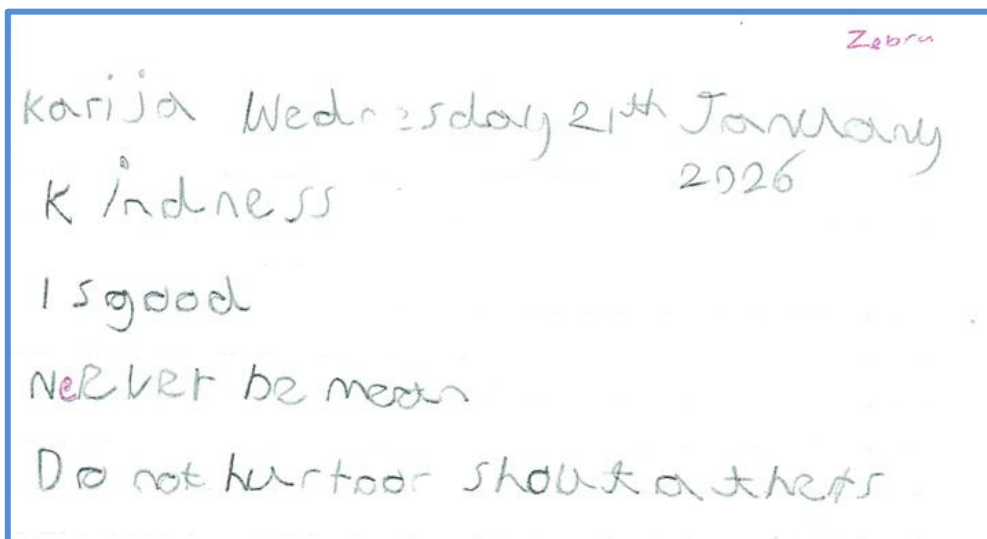 Zebra
Karija Wednesday 21th January
2026
Kindness
Is good
NeEver be mean
Do not hurt oor shout at hers